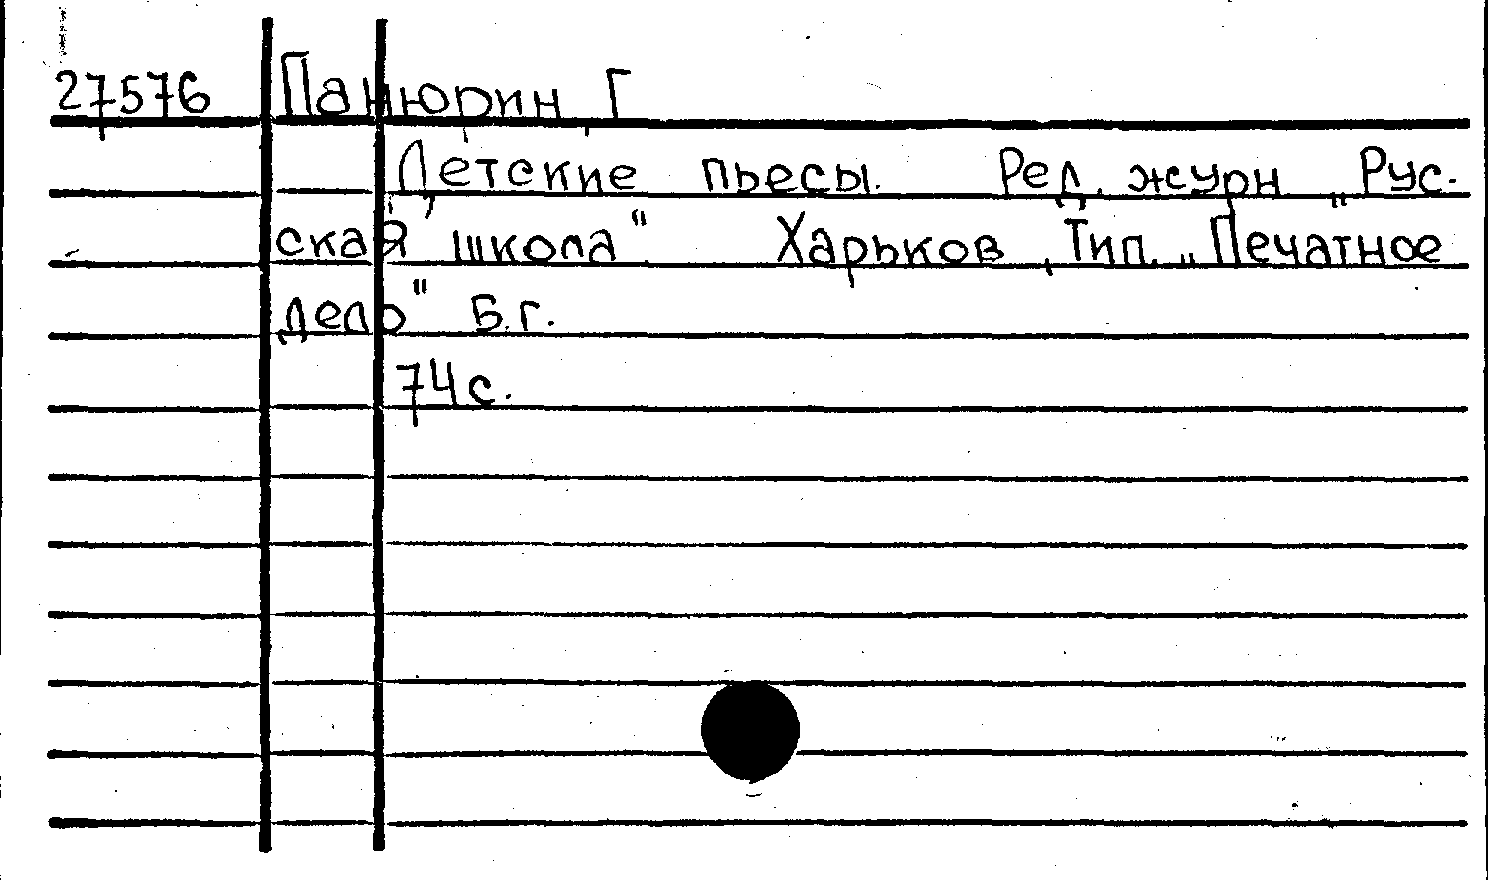 27576 Панюрин, Г
Детские пьесы. Ред. журн „Рус-
ская школа". Харьков, Тип. „Печатное
дело" Б.г.
74с.